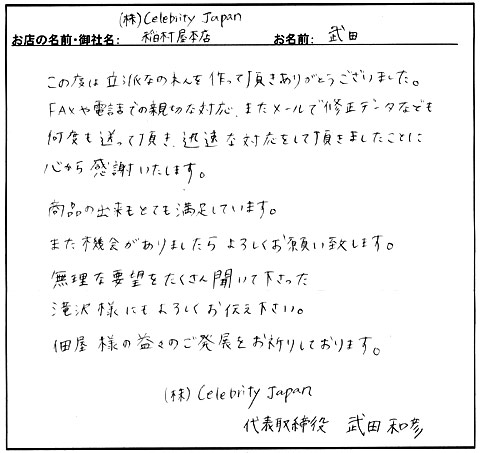 (株)Celebrity Japan
お店の名前・御社名: 稲村屋本店 お名前: 武田
この度は立派なのれんを作って頂きありがとうございました。
FAXや電話での親切な対応、またメールで修正データなども
何度も送って頂き、迅速な対応をして頂きましたことに
心から感謝いたします。
商品の出来もとても満足しています。
また機会がありましたらよろしくお願い致します。
無理な要望をたくさん聞いて下さった
滝沢様にもよろしくお伝え下さい。
佃屋様の益々のご発展をお祈りしております。
(株)Celebrity Japan
代表取締役 武田和彦